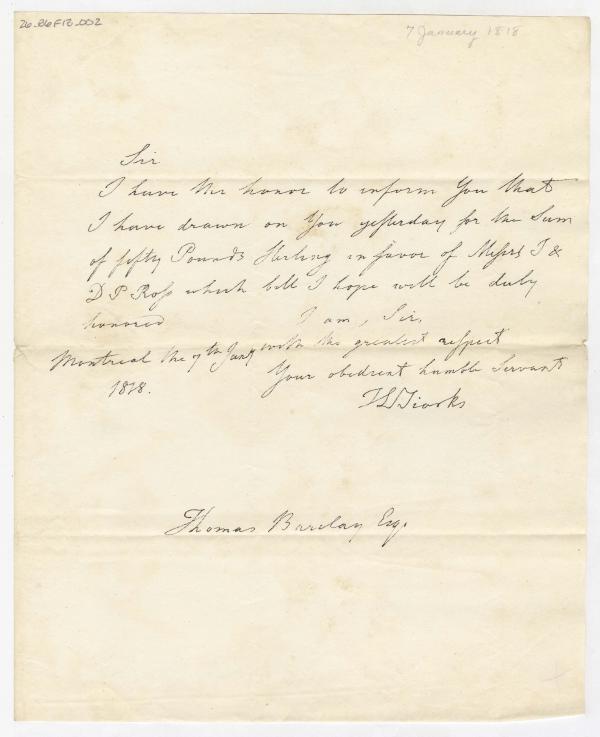 26-B6F13-002
7 January 1818
Sir
I have the honor to inform You that
I have drawn on You yesterday for the Sum
of fifty Pounds Sterling in favor of Messrs T &
D P Ross which bill I hope will be duly
honored I am, Sir,
with the greatest respect
Montreal the 7th Jany Your obedient humble Servant
1818.
Thomas Barclay Esq.